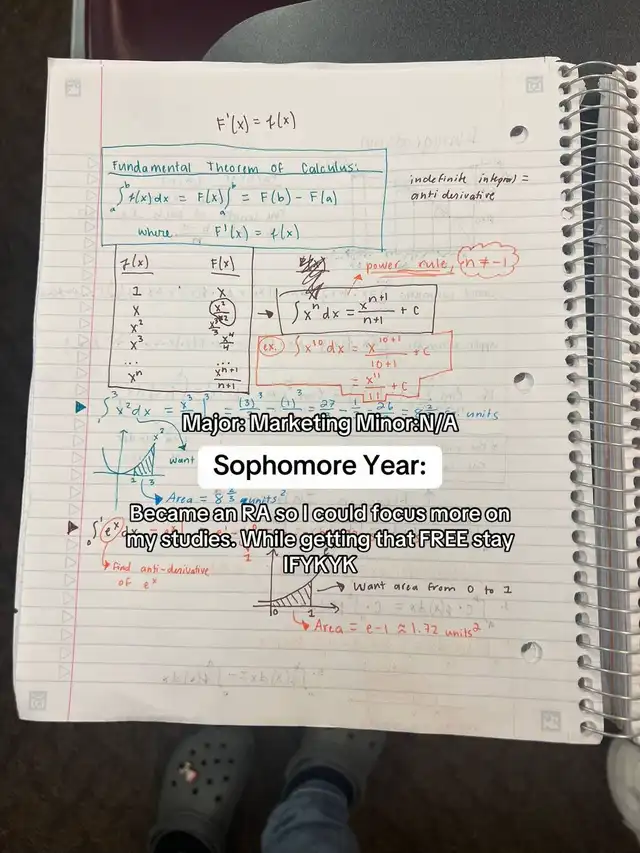 F'(x) = f(x)
Fundamental Theorem of Calculus:
∫ₐᵇ f(x) dx = F(x) ∫ₐᵇ = F(b) - F(a)
where F'(x) = f(x)
indefinite integral =
antiderivative
f(x) F(x)
1 x
x x²/2
x² x³/3
x³ x⁴/4
... ...
xⁿ xⁿ⁺¹/n+1
power rule, n ≠ -1
→ ∫ xⁿ dx = xⁿ⁺¹/n+1 + C
ex. ∫ x¹⁰ dx = x¹⁰⁺¹/10+1 + C
= x¹¹/11 + C
∫₁³ x² dx = x³/3 |₁³ = (3)³/3 - (1)³/3 = 27/3 - 1/3 = 26/3 = 8 2/3 units
Major: Marketing Minor:N/A
x²
want
1 3
Sophomore Year:
Area = 8 2/3 units²
Became an RA so I could focus more on
my studies. While getting that FREE stay
IFYKYK
∫₀¹ eˣ dx = eˣ
find anti-derivative
of eˣ
0 1
→ Want area from 0 to 1
Area = e-1 ≈ 1.72 units²